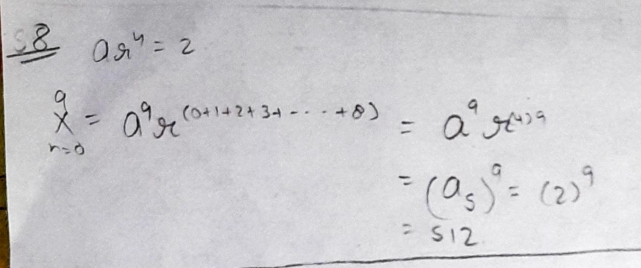 58 ar⁴ = 2
9
X = a⁹r^(0+1+2+3+----+8) = a⁹ r^(4)9
n=0
= (a₅)⁹ = (2)⁹
= 512